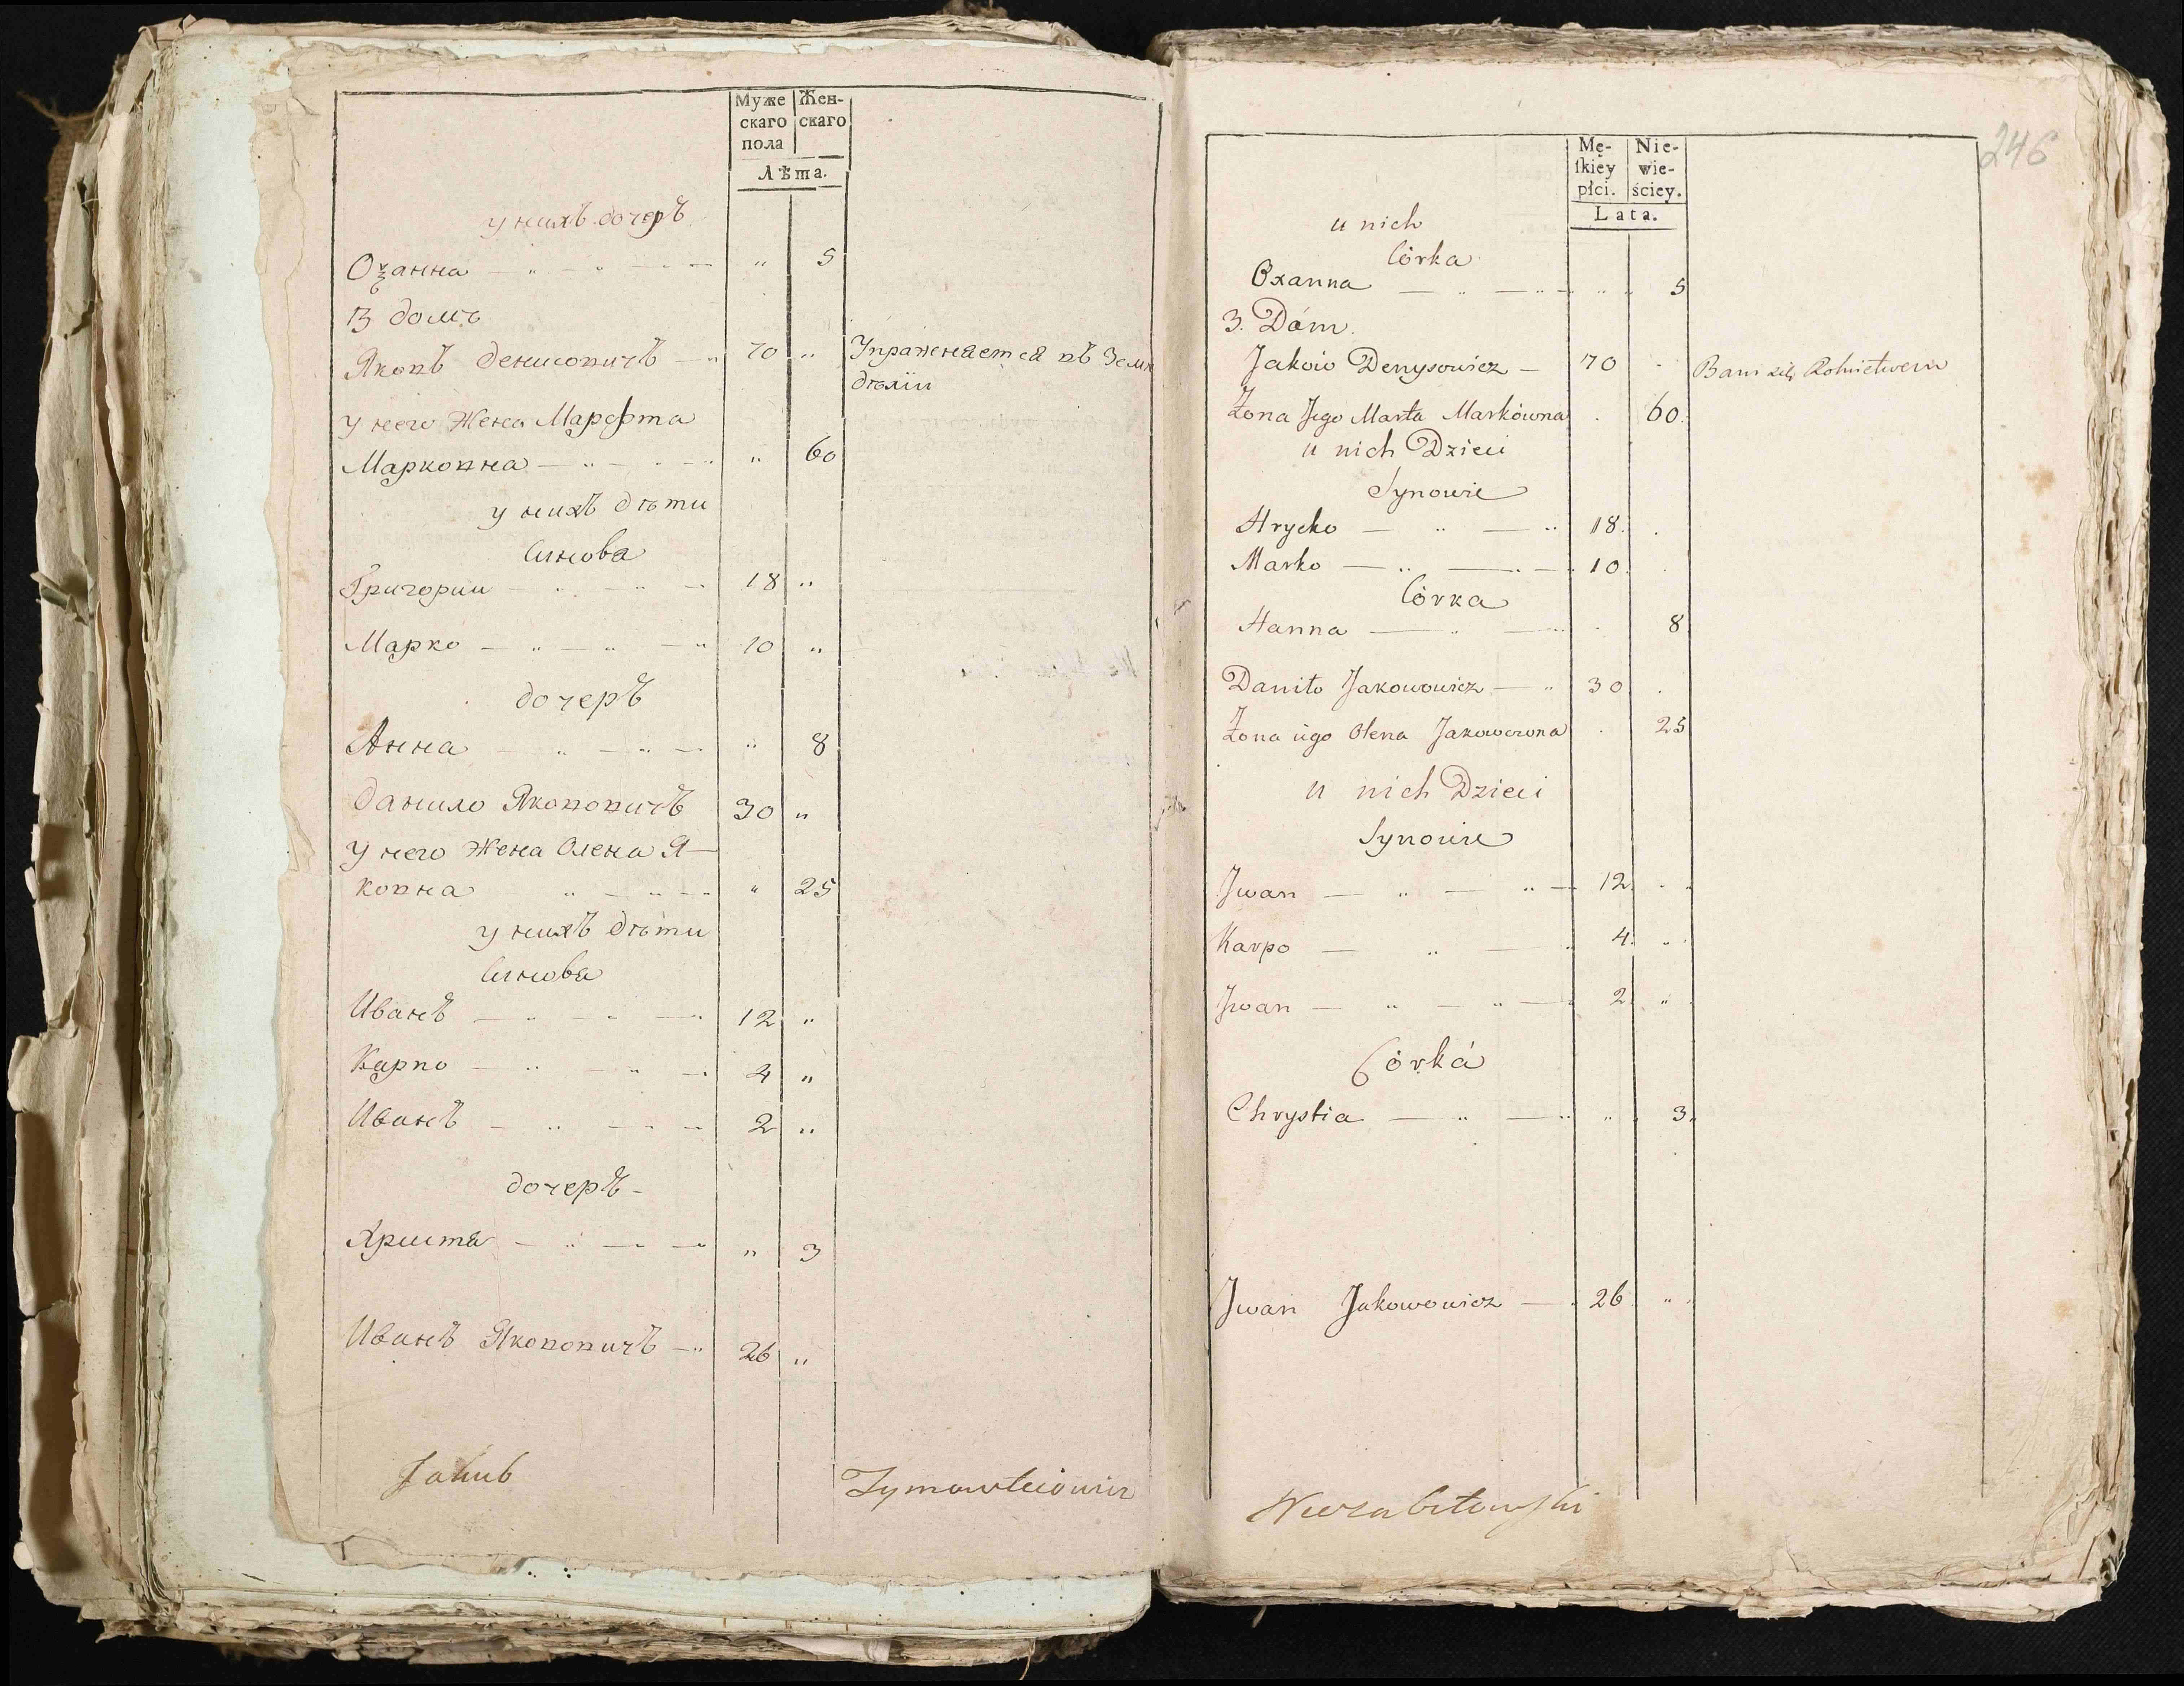 Муже
скаго
пола
Жен-
скаго
Лѣта.
у нихъ дочеръ
Оѯанна — „ — „ — „ — „ 5
3 домъ
Яковъ Денисовичъ — „ 70 „ Упражняется въ Земле
дѣліи
у него Жена Марфта
Марковна — „ — „ — „ „ 60
у нихъ дѣти
Синова
Григории — „ — „ — 18 „
Марко — „ — „ — „ 10 „
дочеръ
Анна — „ — „ — „ 8
Данило Яковovичъ 30 „
у него Жена Олена Я-
ковна „ — „ — „ „ 25
у нихъ дѣти
Синова
Иванъ — „ — „ — „ 12 „
Карпо — „ — „ — „ 4 „
Иванъ — „ — „ — „ 2 „
дочеръ -
Христя — „ — „ — „ „ 3
Иванъ Якововичъ — „ 26 „
Jakub
246
Mę-
ſkiey
płci.
Nie-
wie-
ściey.
Lata.
u nich
Córka
Oxanna — „ — „ — „ 5
3. Dóm.
Jakow Denysowicz — 70 . Bawi się Rolnictwem
Żona Jego Marta Markówna . 60.
u nich Dzieci
Synowie
Hryćko — „ — „ 18. .
Marko — „ — „ — 10. .
Córka
Hanna — „ — „ . 8
Daniło Jakowowicz — „ 30 .
Żona iego Olena Jakowowna . 25
u nich Dzieci
Synowie
Jwan — „ — „ — 12. „
Karpo — „ — „ 4. „
Jwan — „ — „ — 2. „
Córka
Chrystia — „ — „ „ 3.
Jwan Jakowowicz — 26 „